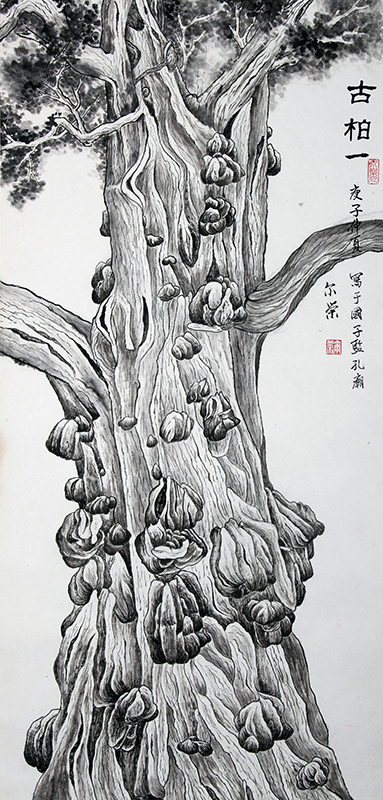 古柏一
庚子仲夏 寫于國子監孔廟
尔荣